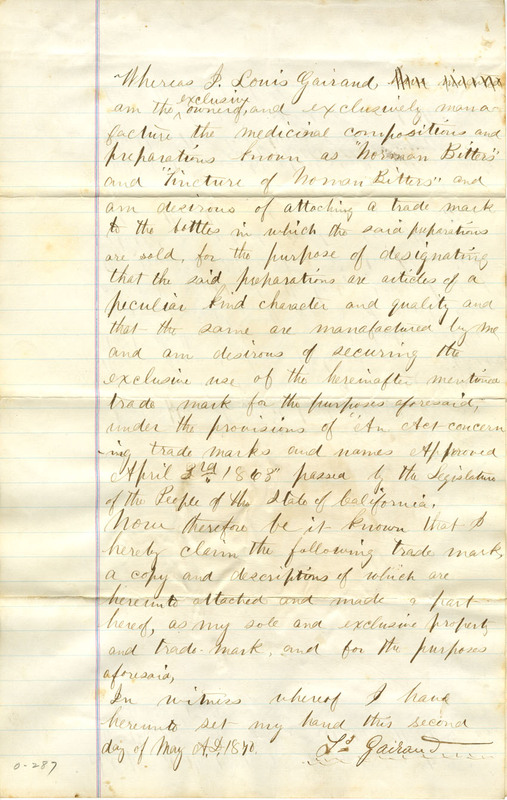 Whereas I. Louis Gairaud,
am the exclusive owner of, and exclusively manu-
facture the medicinal compositions and
preparations known as "Norman Bitters"
and "Tincture of Norman Bitters" and
am desirous of attaching a trade mark
to the bottles in which the said preparations
are sold, for the purpose of designating
that the said preparations are articles of a
peculiar kind character and quality and
that the same are manufactured by me
and am desirous of securing the
exclusive use of the hereinafter mentioned
trade mark for the purposes aforesaid,
under the provisions of "An Act concern
ing trade marks and names Approved
April 3rd 1863" passed by the Legislature
of the People of the State of California.
Now therefore be it known that I
hereby claim the following trade mark,
a copy and descriptions of which are
hereunto attached and made a part
hereof, as my sole and exclusive property
and trade-mark, and for the purposes
aforesaid,
In witness whereof I have
hereunto set my hand this second
day of May A.D. 1870.
Ls Gairaud
0-287